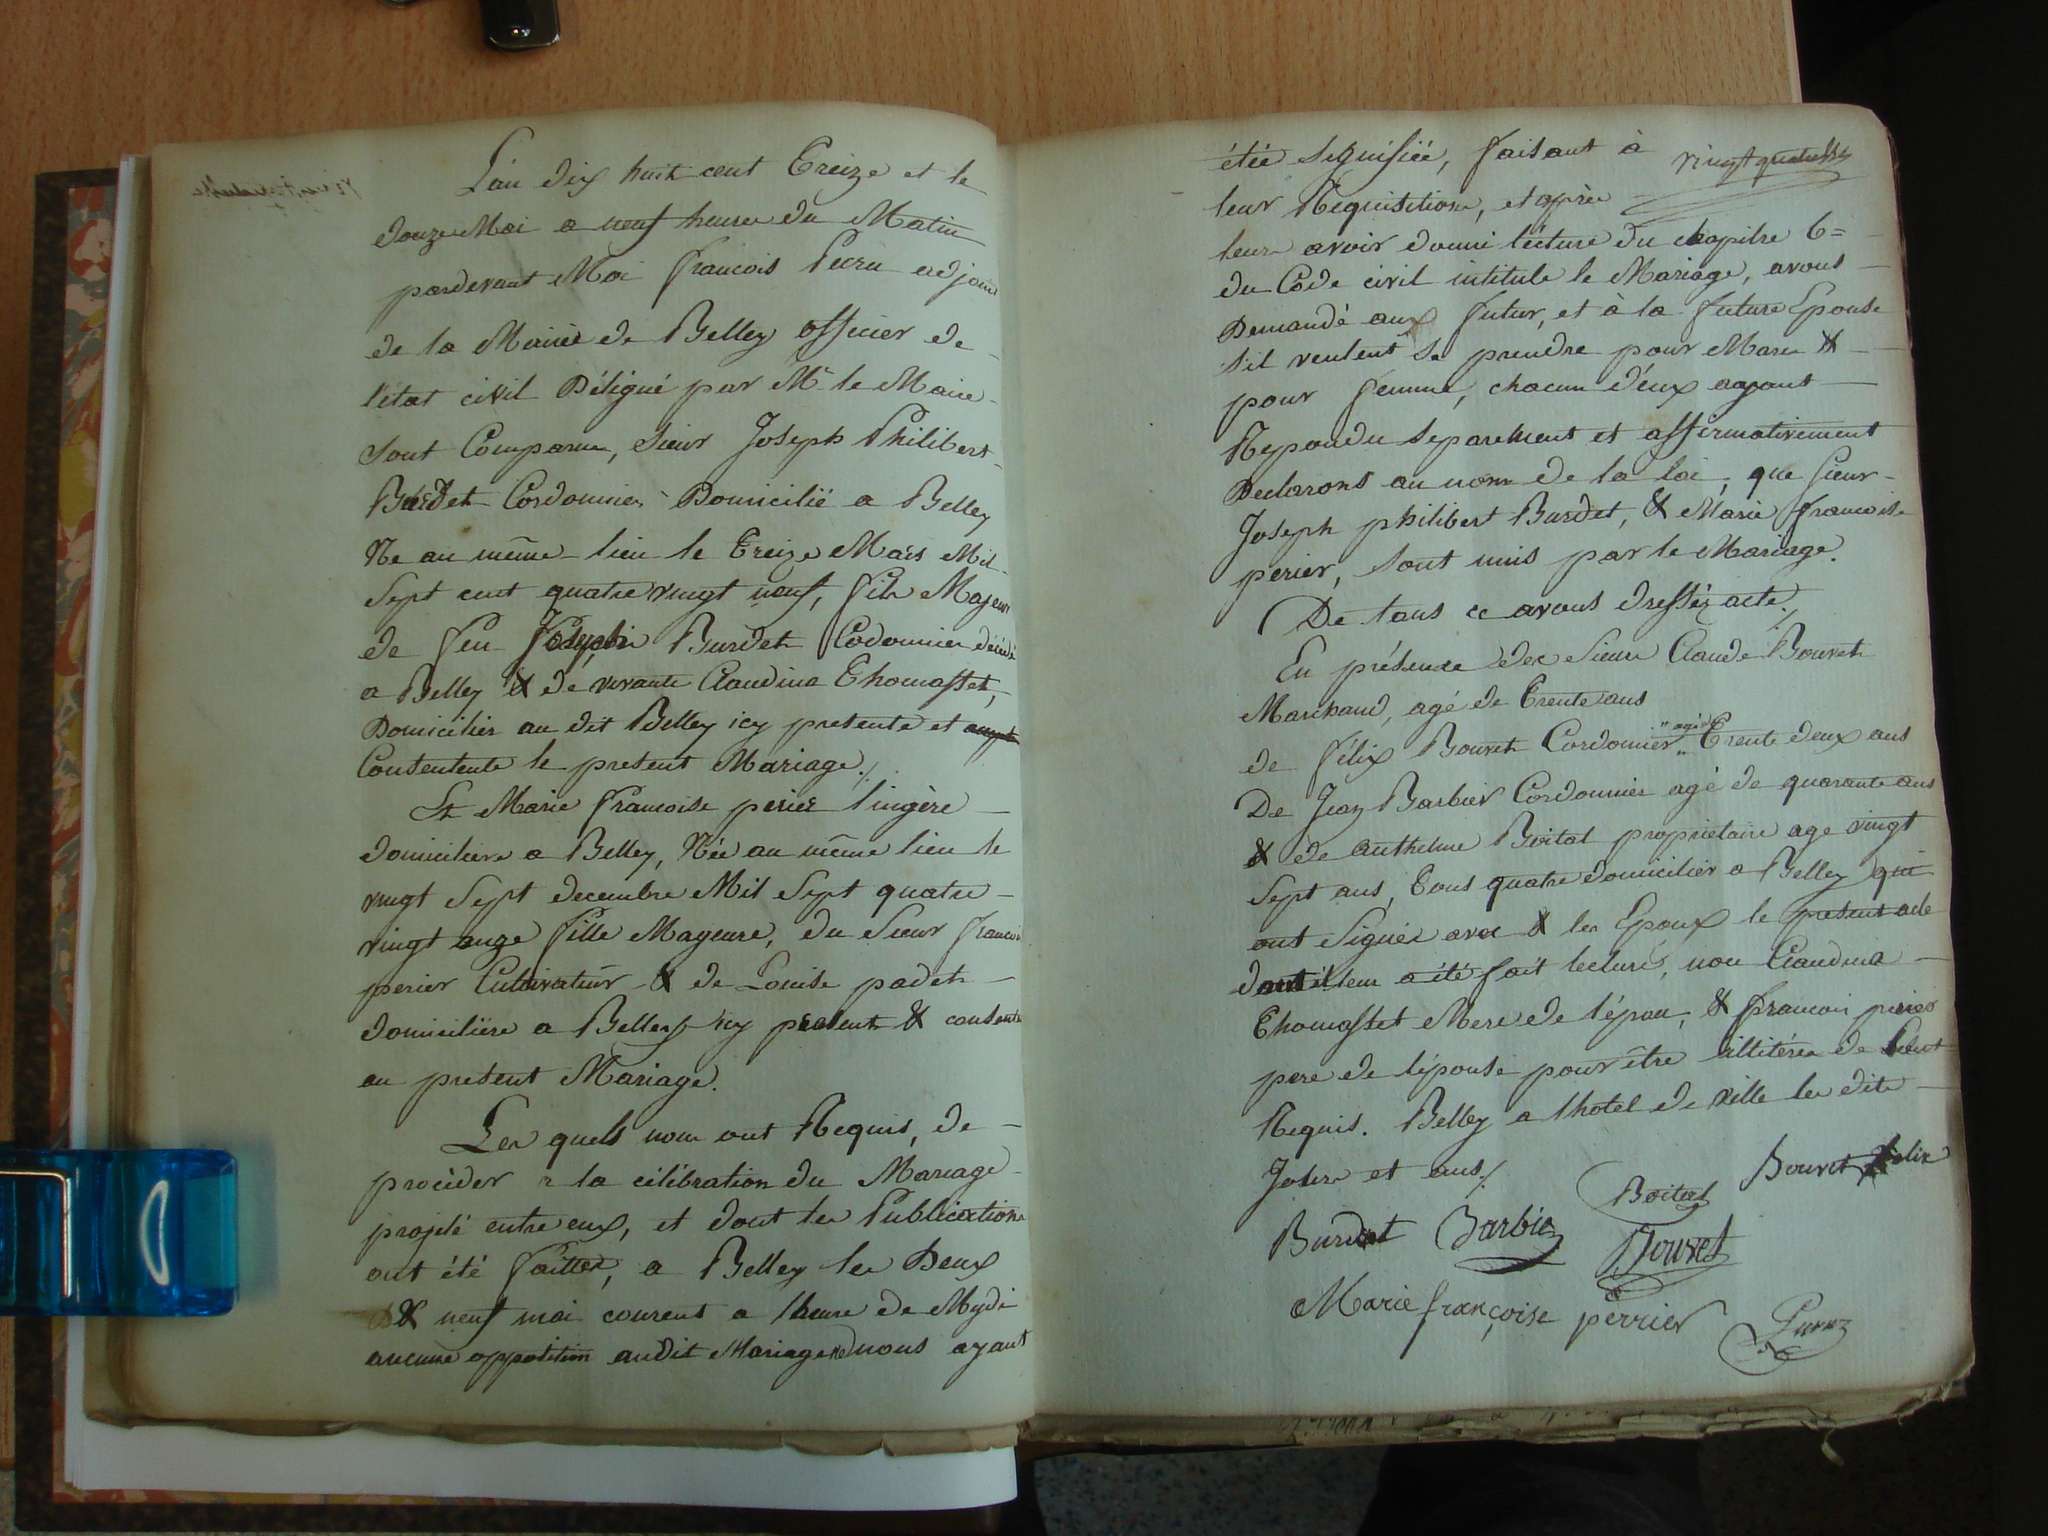 L'an dix huit cent Treize et le
douze Mai a neuf heures du Matin
pardevant Moi françois adjoint
de la Mairie de Belley officier de
l'état civil Déligué par Mr le Maire
sont Comparus, sieur Joseph Philibert
Burdet Cordonnier Domicilié a Belley
Né au même lieu le Treize Mars Mil
Sept cent quatre vingt neuf, fils Majeur
de feu Burdet Codonnier décédé
a Belley & de vivante Claudina Thomasset,
Domiciliés au dit Belley icy presente et
Consentente le present Mariage./
Et Marie francoise perier lingère
domiciliere a Belley, Née au même lieu le
vingt Sept decembre Mil Sept quatre
vingt onze fille Mageure, du Sieur francois
perier Cultivateur & de Louise padet
domiciliére a Belley icy present & consente
au present Mariage.
Les quels nous ont Requis, de
procéder a la célébration du Mariage
projété entre eux, et dont les Publications
ont été faittes, a Belley les Deux
& neuf mai courent a lheure de Mydi
aucune opposition audit Mariage ne nous ayant
vingt quatre
étée signifiée, faisant à
leur Requisitione, et après
leurs avoir donné lécture du chapitre 6=
du Code civil intitule le Mariage, avons
Demandé aux futur, et à la future Epouse
s'il veulent se prendre pour Marie &
pour femme, chacun d'eux ayant
Repondu separement et affirmativement
Declarons au nom de la loi, que sieur
Joseph philibert Burdet, & Marie francoise
perier, sont unis par le Mariage.
De tous ce avons dresséz acte./
En présence des sieurs Claude Bouvet
Marchand, agé de Trente ans
de félix Bouvet Cordonnier "agé de" Trente deux ans
De Jean Barbier Cordonnier agé de quarante ans
& de anthelme Boital proprietaire age vingt
Sept ans, Tous quatre domicilier a Belley qui
ont Signés avec & les Epoux le present acte
dont il leur a été fait lecture, non Claudina
Thomasset Mere de l'épou, & francois perier
pere de lépouse pour être illitérés de
Requis. Belley a lhotel de ville les dits
Jours et ans./
Bouvet felix
Boital
Burdet Barbier Bouvet
Marie françoise perrier